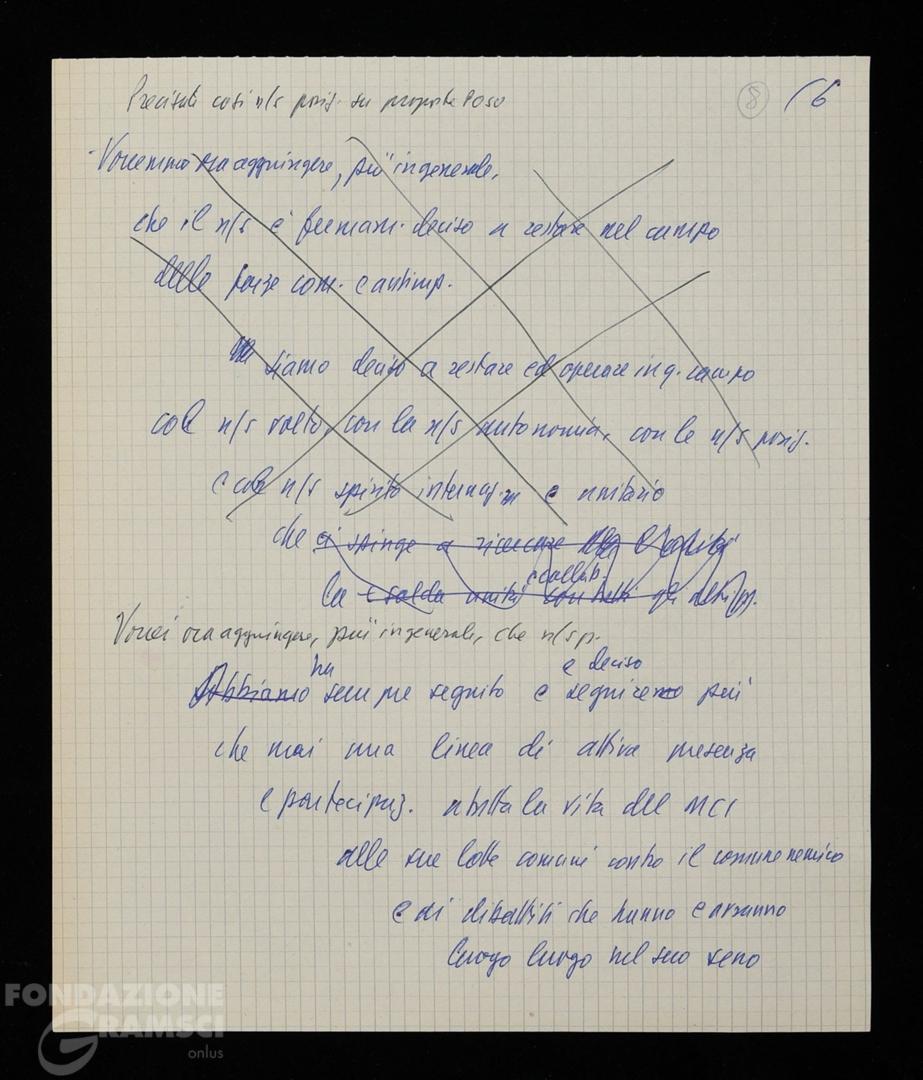 Precisate così n/s posiz. su proposte POSU
8 16
Vorremmo ora aggiungere, più in generale,
che il n/s è fermam. deciso a restare nel campo
delle forze com. e antimp.
siamo decisi a restare ed operare in q. campo
col n/s volto, con la n/s autonomia, con le n/s posiz.
e col n/s spirito internaz. e unitario
che ci spinge a ricercare
e collab.
la salda unità con tutti gli altri p.
Vorrei ora aggiungere, più in generale, che n/s p.
ha e deciso
Abbiamo sempre seguito e seguiremo più
che mai una linea di attiva presenza
e partecipaz. a tutta la vita del MCI
alle sue lotte comuni contro il comune nemico
e ai dibattiti che hanno e avranno
luogo luogo nel suo seno
FONDAZIONE
GRAMSCI
onlus